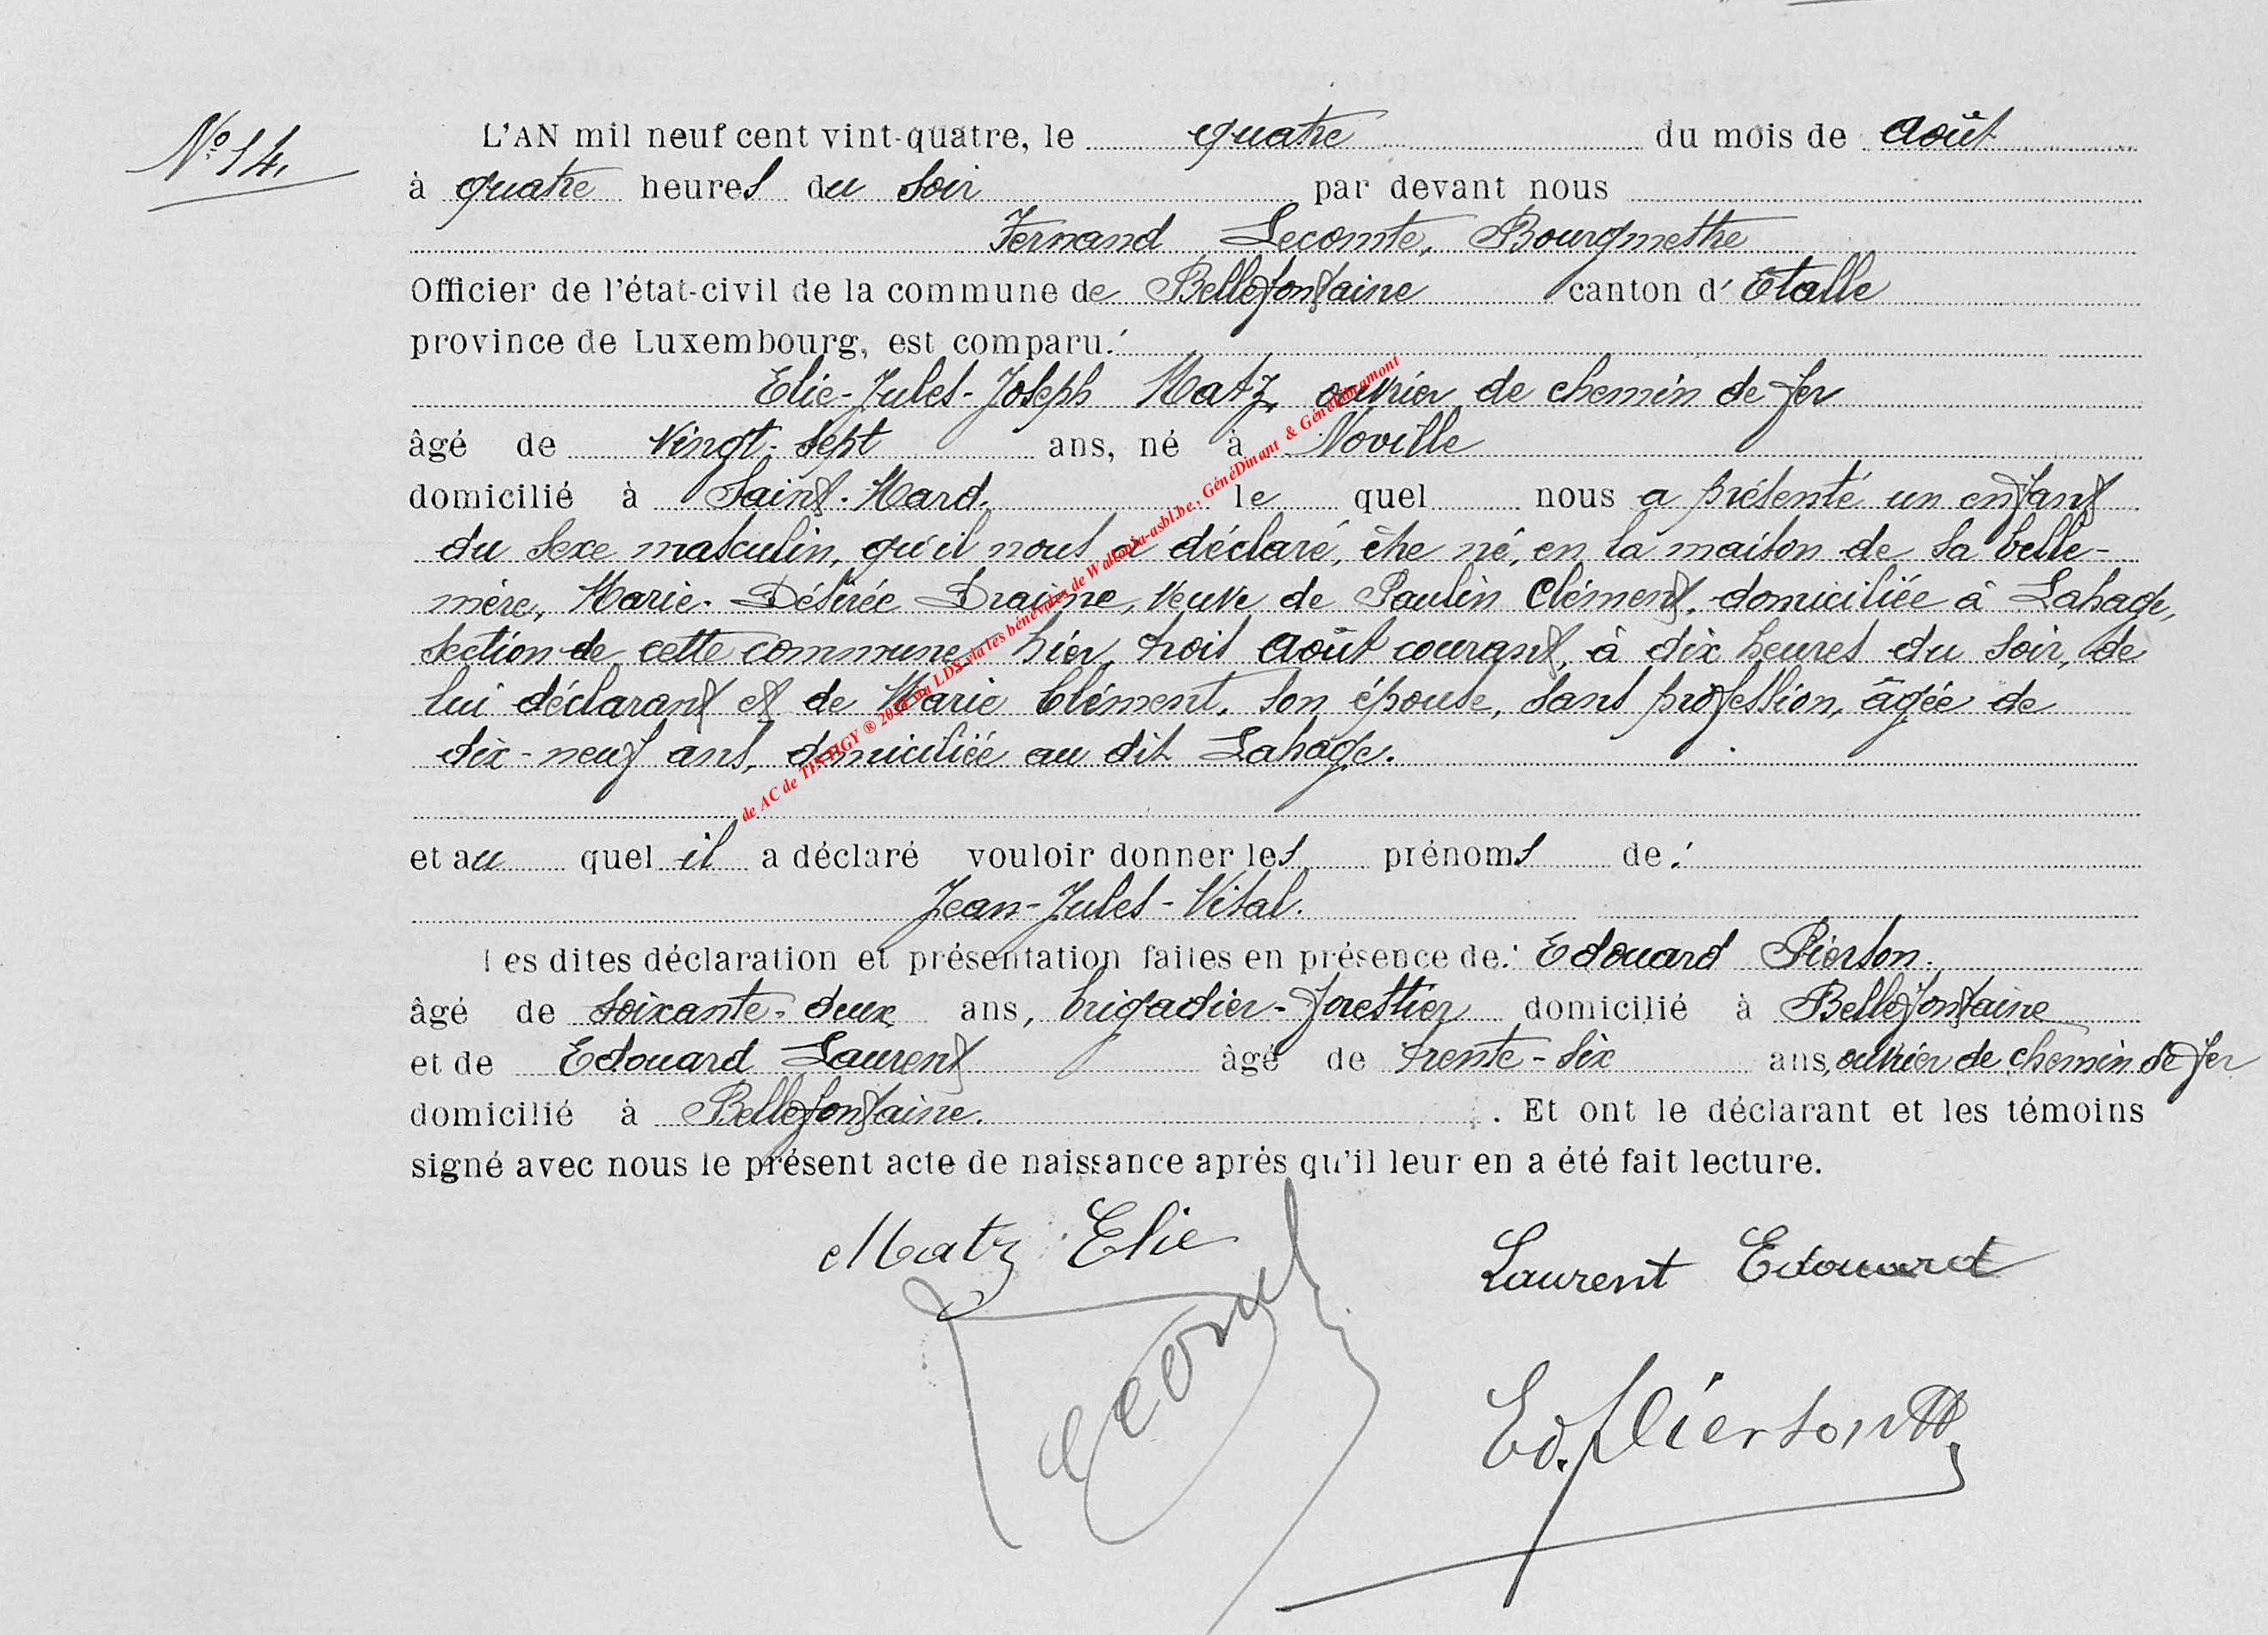 N° 14.
L'AN mil neuf cent vint-quatre, le quatre du mois de Août
à quatre heures du soir par devant nous
Fernand Lecomte, Bourgmestre
Officier de l'état-civil de la commune de Bellefontaine canton d' Etalle
province de Luxembourg, est comparu:
Elie-Jules-Joseph Matz, ouvrier de chemin de fer
âgé de Vingt-sept ans, né à Noville
domicilié à Saint-Mard. le quel nous a présenté un enfant
du sexe masculin, qu'il nous a déclaré, être né, en la maison de sa belle-
mère, Marie-Désirée Draime, veuve de Paulin Clément, domiciliée à Lahage,
section de cette commune, hier, trois Août courant, à dix heures du soir, de
lui déclarant et de Marie Clément, son épouse, sans profession, âgée de
dix-neuf ans, domiciliée au dit Lahage.
et au quel il a déclaré vouloir donner les prénoms de:
Jean-Jules-Vital.
Les dites déclaration et présentation faites en présence de: Edouard Pierson.
âgé de soixante-deux ans, brigadier-forestier domicilié à Bellefontaine
et de Edouard Laurent âgé de trente-six ans, ouvrier de chemin de fer
domicilié à Bellefontaine. . Et ont le déclarant et les témoins
signé avec nous le présent acte de naissance après qu'il leur en a été fait lecture.
Matz Elie
Laurent Edouard
Ed. Pierson
de AC de TINTIGY ® 2024 via LDS via les bénévoles de Wallonia-asbl.be, GénéDinant & GénéLibramont